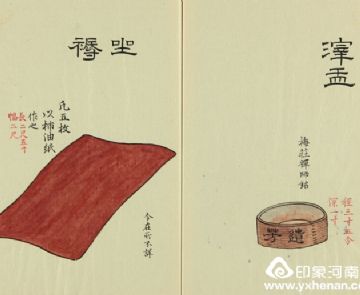 滓盂
梅莊禪師銘
徑三寸五分
深一寸
遺芳
坐褥
凡五枚
以柿油紙
作之
長二尺五寸
幅二尺
今在所不詳
印象河南
www.yxhenan.com